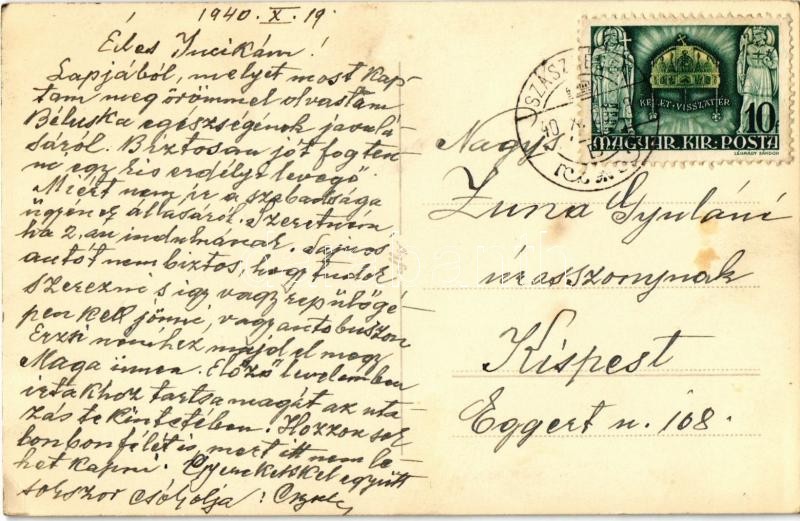 1940. X. 19.
Édes Incikám!
Lapjából, melyet most kap-
tam meg örömmel olvastam
Béluska egészségének javulá-
sáról. Biztosan jót fog ten-
ni egy kis erdélyi levegő.
Miért nem ír a szabadsága
ügyének állásáról. Szeretném
ha 2.-án indulnának. Sajnos
autót nem biztos, hogy tudok
szerezni s így vagy repülőgé-
pen kell jönni, vagy autobuszon
Erzsi nénihez majd el megy
Maga innen. Előző levelemben
írtakhoz tartsa magát az uta-
zás tekintetében. Hozzon sok
bonbonfélét is, mert itt nem le-
het kapni. Gyerekekkel együtt
sokszor csókolja:
KELET VISSZATÉR
10
MAGYAR KIR. POSTA
LÉGRÁDY SÁNDOR
SZÁSZ
40
Nagys.
Zuna Gyuláné
úrasszonynak
Kispest
Eggert u. 108.